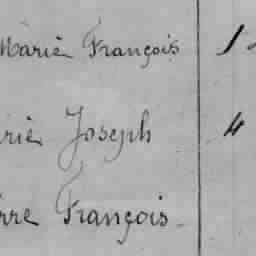 Marie François 1
rie Joseph 4
rre François